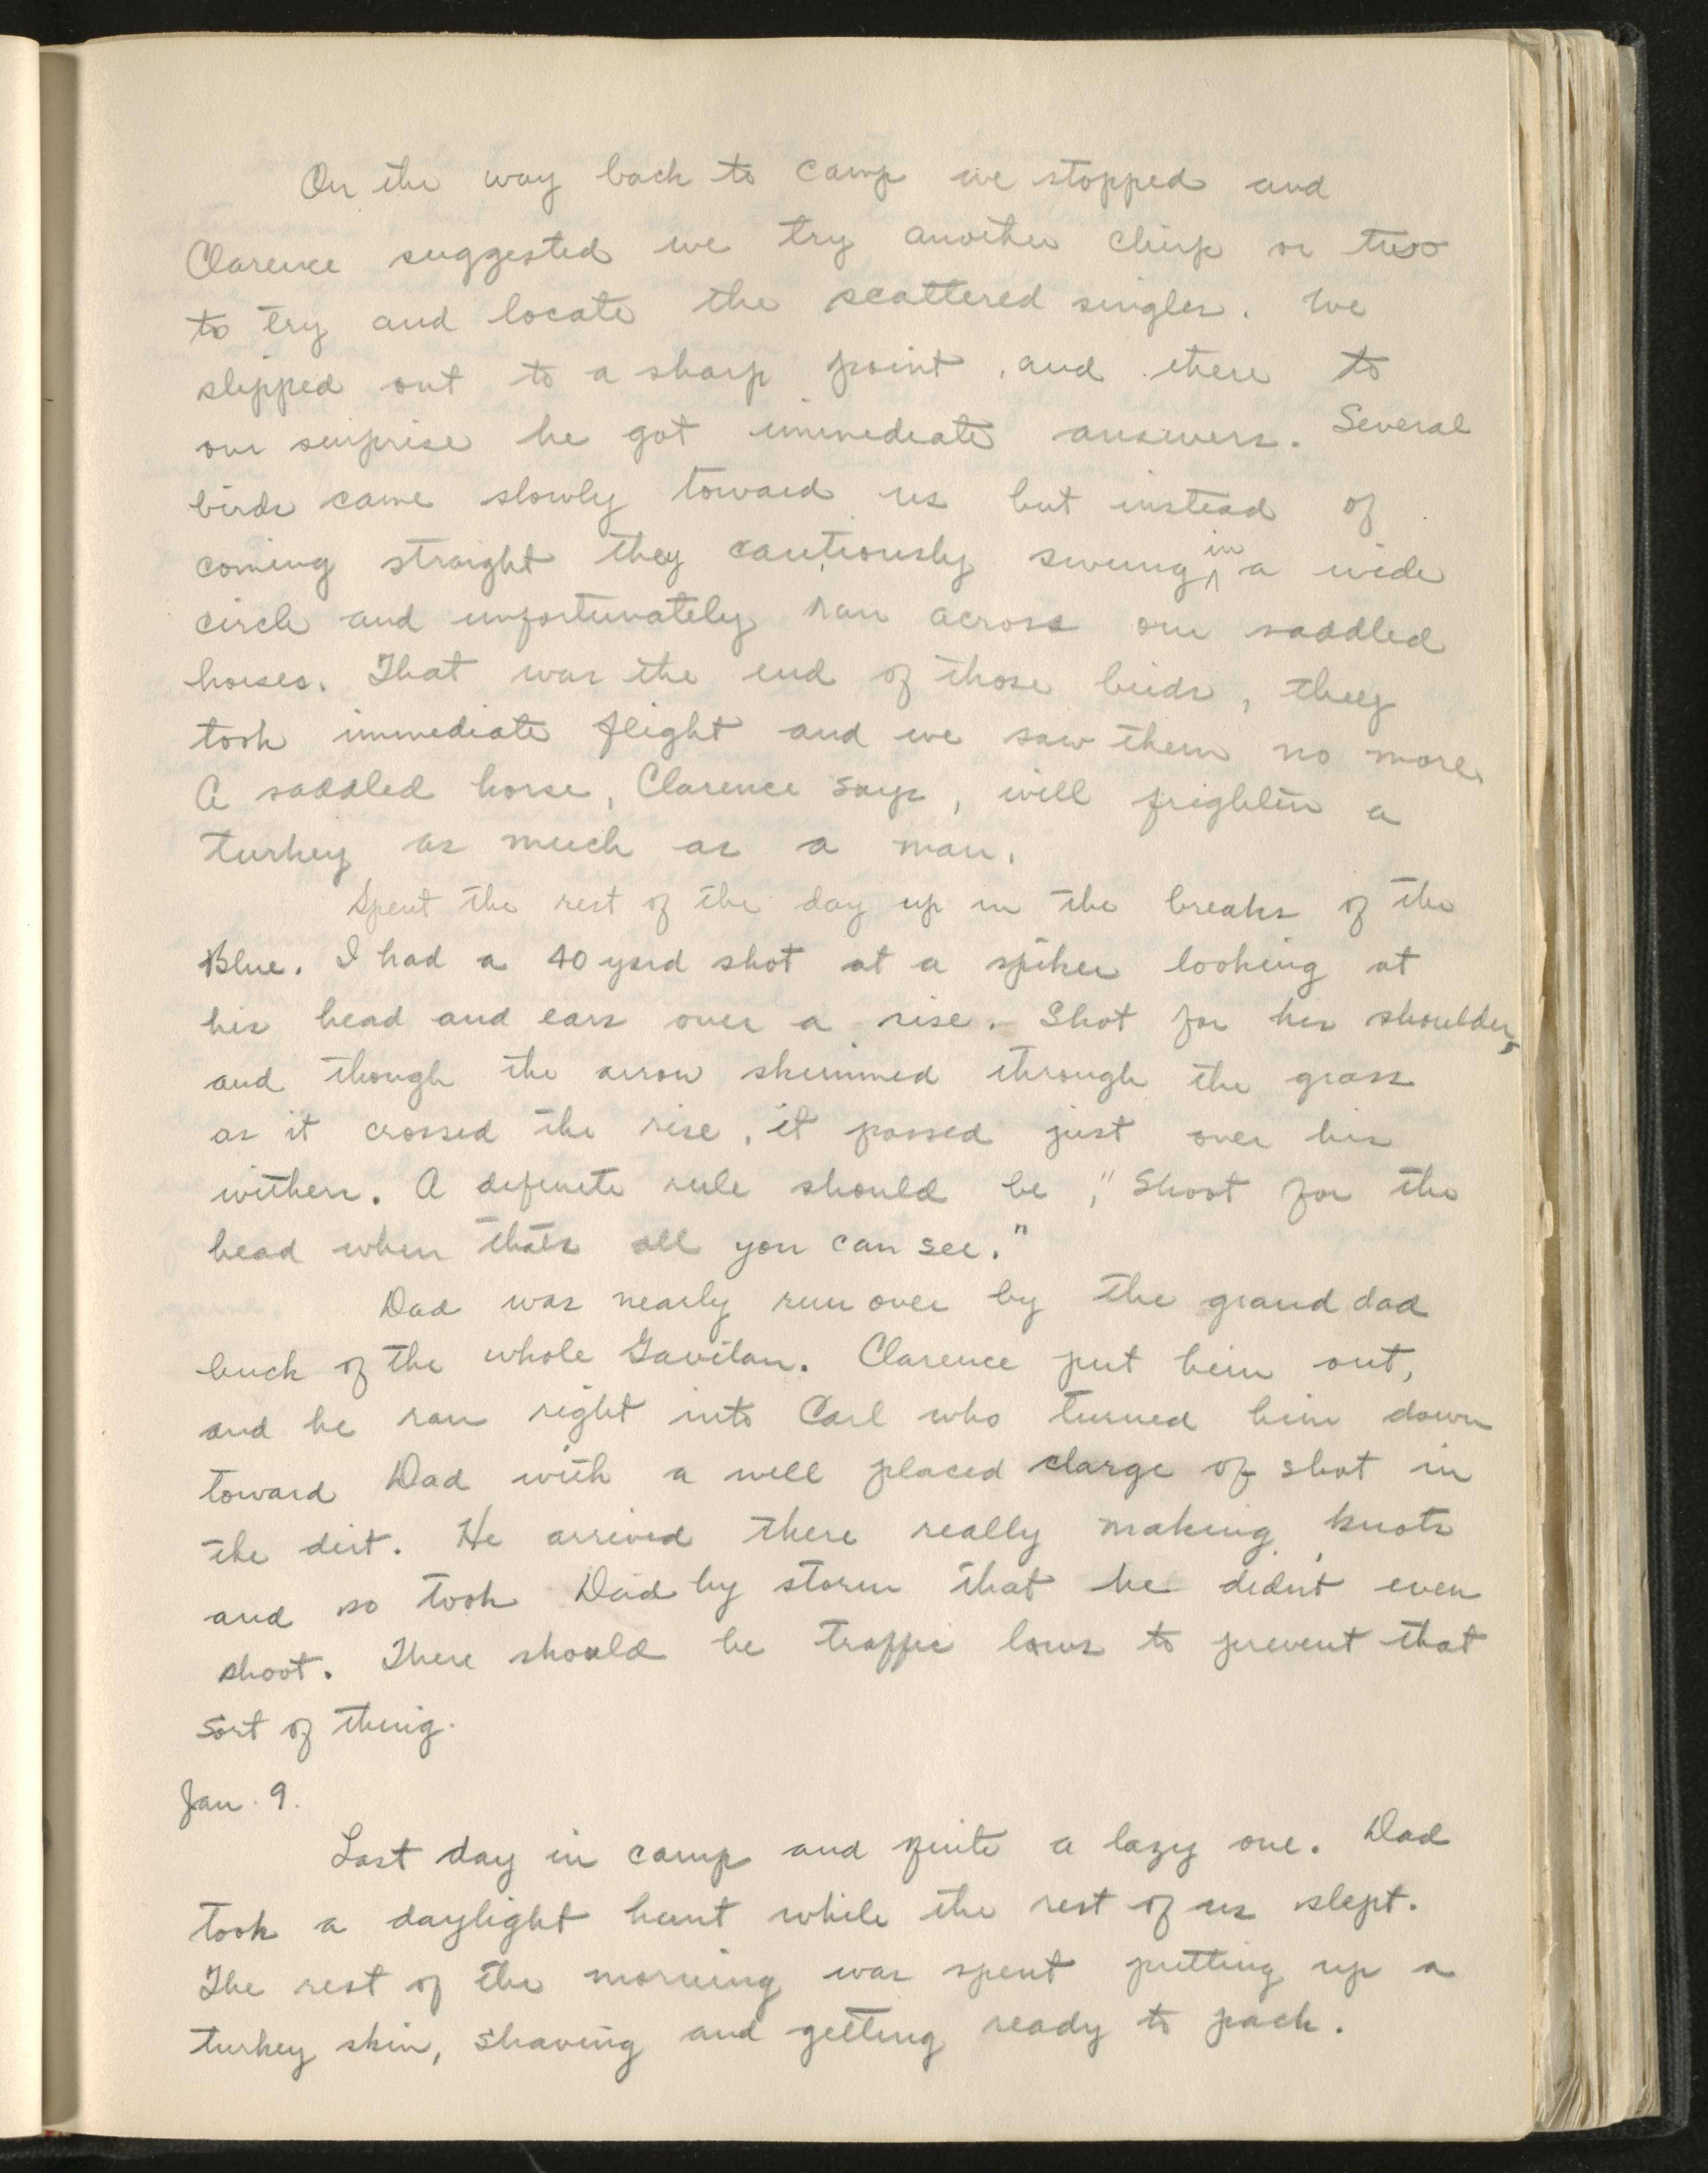 On the way back to camp we stopped and
Clarence suggested we try another chirp or two
to try and locate the scattered singles. We
slipped out to a sharp point, and there to
our surprise he got immediate answers. Several
birds came slowly toward us but instead of
coming straight they cautiously swung in a wide
circle and unfortunately ran across our saddled
horses. That was the end of those birds, they
took immediate flight and we saw them no more.
A saddled horse, Clarence says, will frighten a
turkey as much as a man.
Spent the rest of the day up in the breaks of the
Blue. I had a 40 yard shot at a spiker looking at
his head and ears over a rise. Shot for his shoulder,
and though the arrow skimmed through the grass
as it crossed the rise, it passed just over his
withers. A definite rule should be, "Shoot for the
head when that's all you can see."
Dad was nearly run over by the grand dad
buck of the whole Gavilan. Clarence put him out,
and he ran right into Carl who turned him down
toward Dad with a well placed charge of shot in
the dirt. He arrived there really making knots
and so took Dad by storm that he didn't even
shoot. There should be traffic laws to prevent that
sort of thing.
Jan. 9.
Last day in camp and quite a lazy one. Dad
took a daylight hunt while the rest of us slept.
The rest of the morning was spent putting up a
turkey skin, shaving and getting ready to pack.